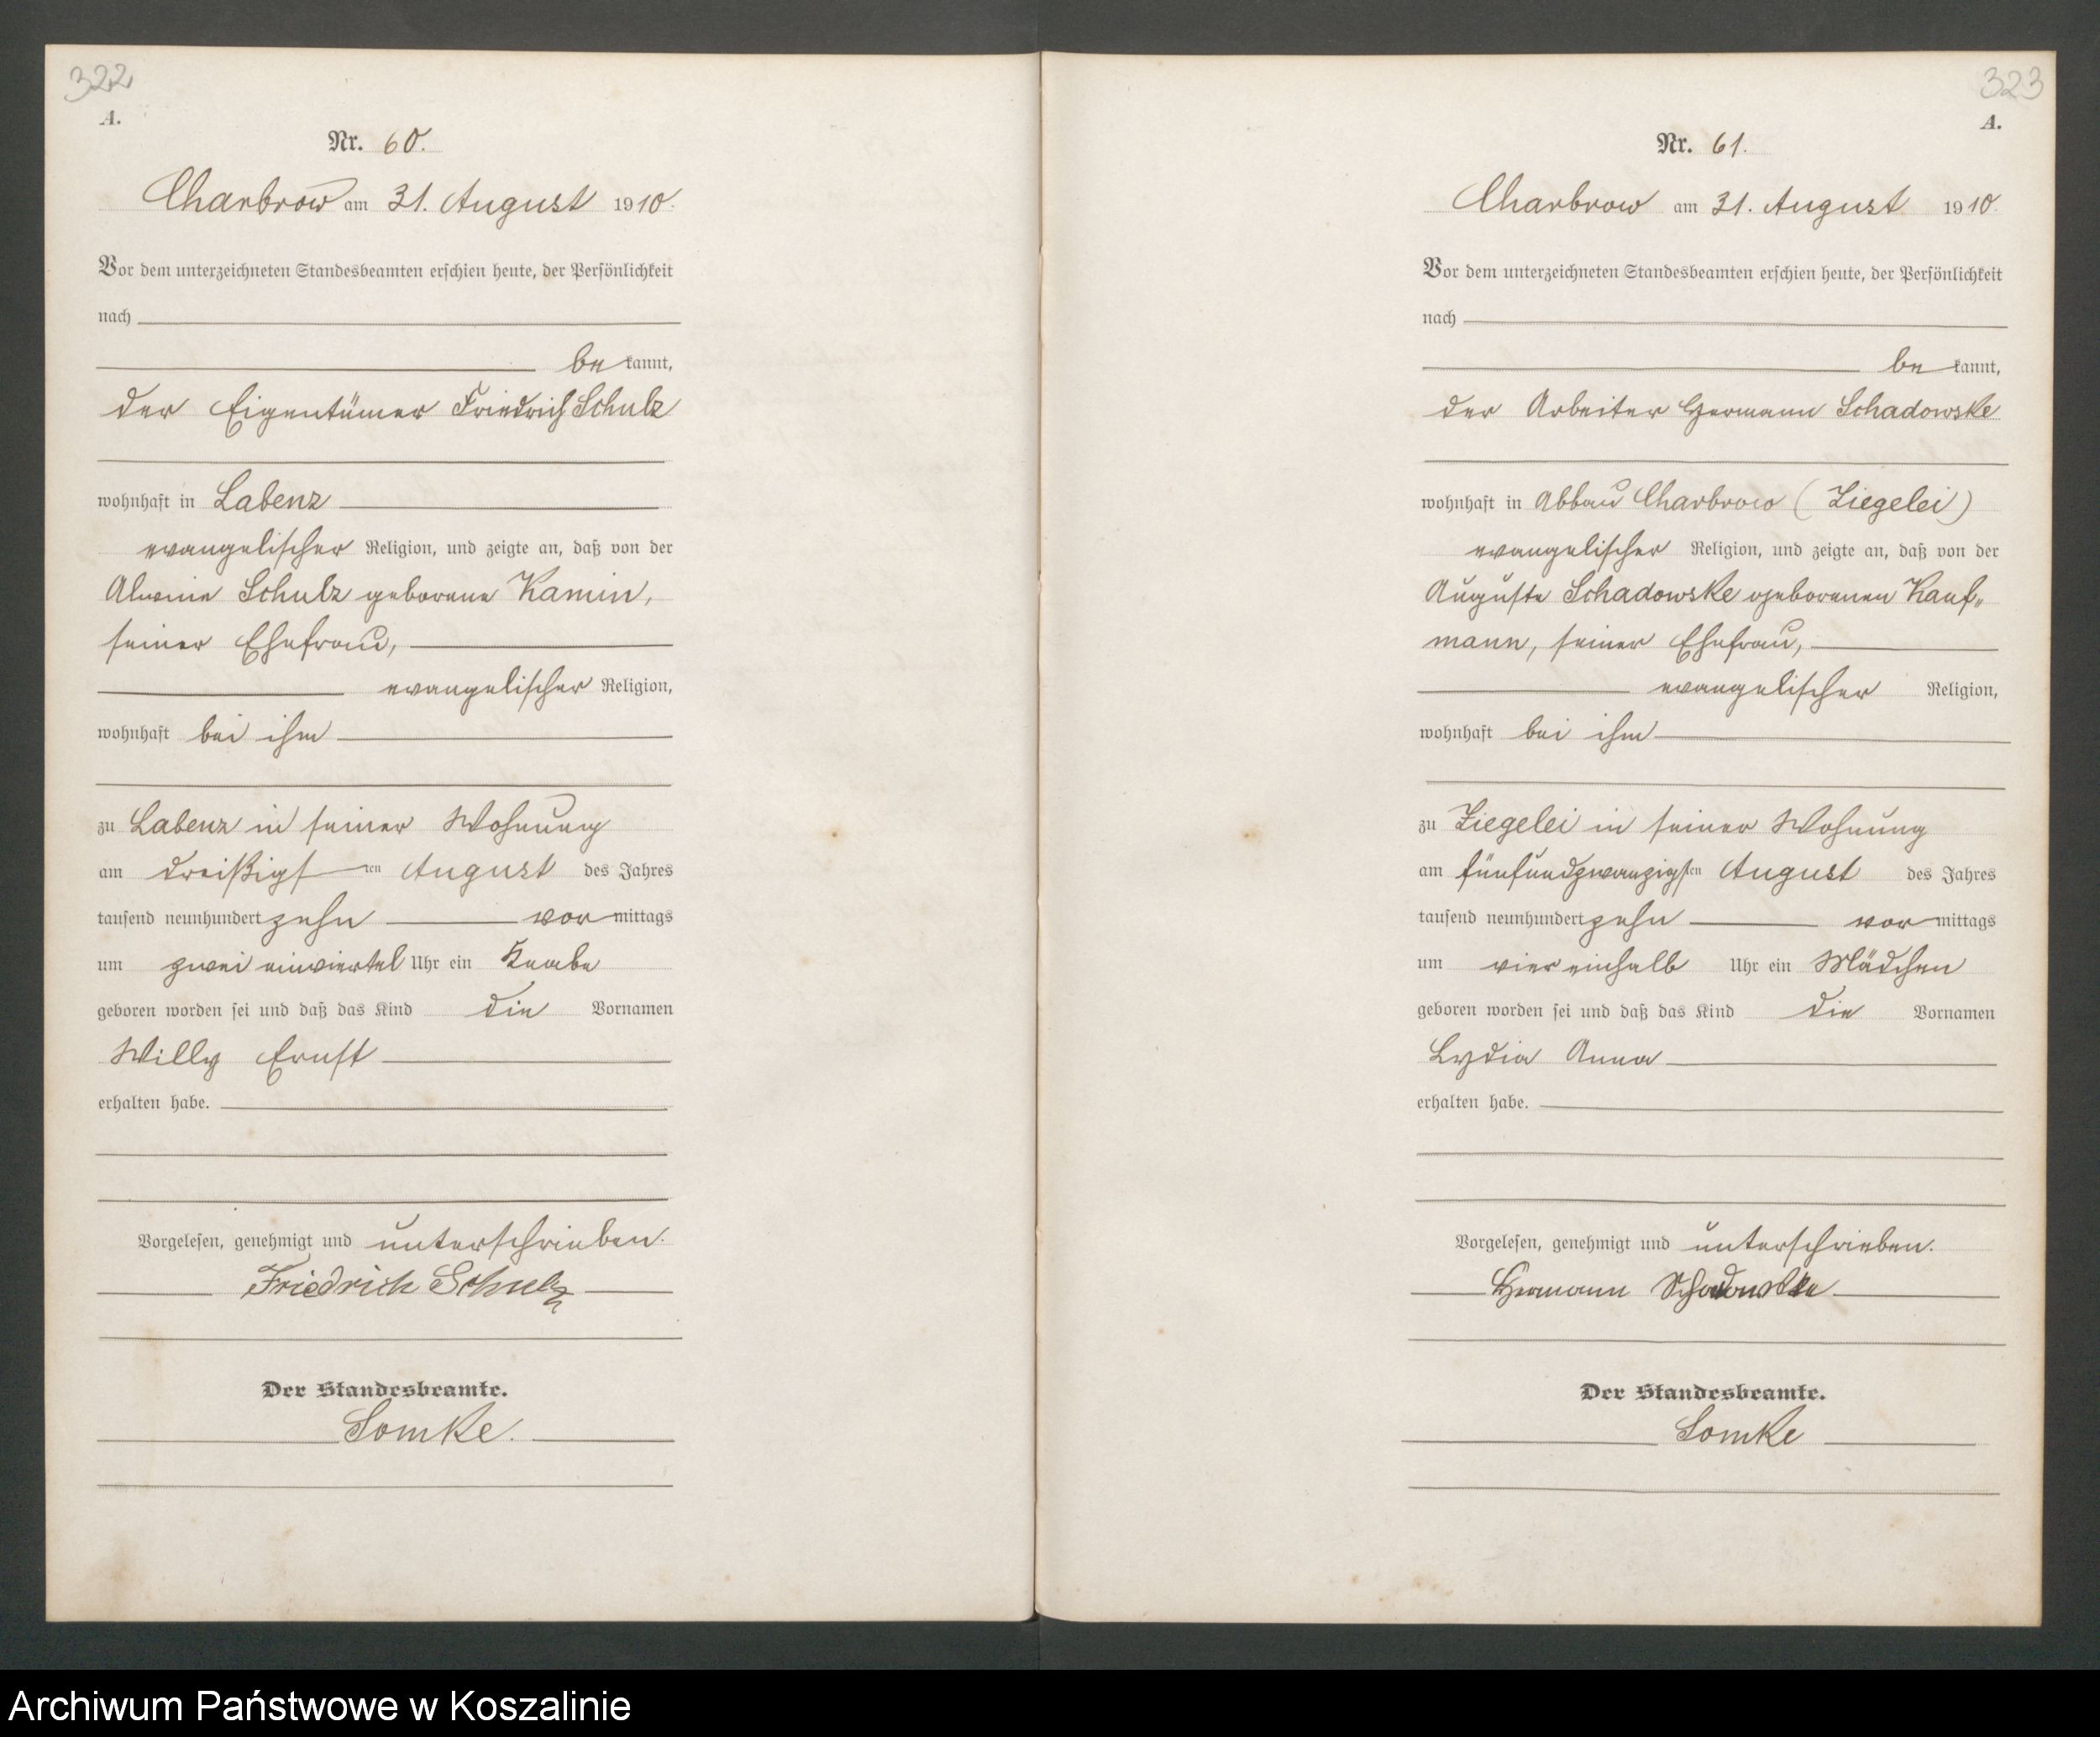 322
A.
Nr. 60.
Charbrow am 31. August 1910.
Vor dem unterzeichneten Standesbeamten erschien heute, der Persönlichkeit
nach
be kannt,
der Eigentümer Friedrich Schulz
wohnhaft in Labenz
evangelischer Religion, und zeigte an, daß von der
Alwine Schulz geborene Kamin,
seiner Ehefrau,
evangelischer Religion,
wohnhaft bei ihm
zu Labenz in seiner Wohnung
am dreißigsten August des Jahres
tausend neunhundert zehn vor mittags
um zwei einviertel Uhr ein Knabe
geboren worden sei und daß das Kind die Vornamen
Willy Ernst
erhalten habe.
Vorgelesen, genehmigt und unterschrieben.
Friedrich Schulz
Der Standesbeamte.
Somke.
323
A.
Nr. 61.
Charbrow am 31. August 1910.
Vor dem unterzeichneten Standesbeamten erschien heute, der Persönlichkeit
nach
be kannt,
der Arbeiter Hermann Schadowske
wohnhaft in Abbau Charbrow (Ziegelei)
evangelischer Religion, und zeigte an, daß von der
Auguste Schadowske geborenen Kauf„
mann, seiner Ehefrau,
evangelischer Religion,
wohnhaft bei ihm
zu Ziegelei in seiner Wohnung
am fünfundzwanzigsten August des Jahres
tausend neunhundert zehn vor mittags
um vier einhalb Uhr ein Mädchen
geboren worden sei und daß das Kind die Vornamen
Lydia Anna
erhalten habe.
Vorgelesen, genehmigt und unterschrieben.
Hermann Schadowske
Der Standesbeamte.
Somke
Archiwum Państwowe w Koszalinie